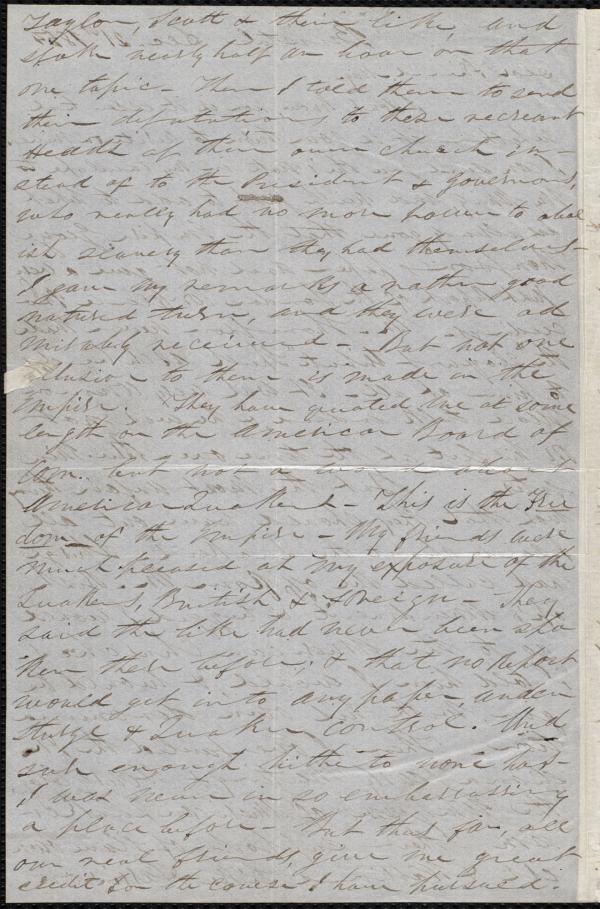 Taylor, Scott & their like, and
spoke nearly half an hour on that
one topic - Then I told them to send
their deputations to these recreant
Heads of their own church in-
stead of to the President & governors,
who really had no more power to abol
ish slavery than they had themselves -
I gave my remarks a rather good
natured turn, and they were ad
mirably received - But not one
allusion to them is made in the
Empire. They have quoted me at some
length on the American Board of
Com. but not a word about
American Quakers - This is the Free
dom of the Empire - My friends were
much pleased at my exposure of the
Quakers, British & foreign - They
said the like had never been spo
ken there before, & that no report
would get into any paper, under
Sturge & Quaker control. And
sure enough hitherto none has -
I was never in so embarrassing
a place before - But thus far, all
our real friends, give me great
credit for the course I have pursued.